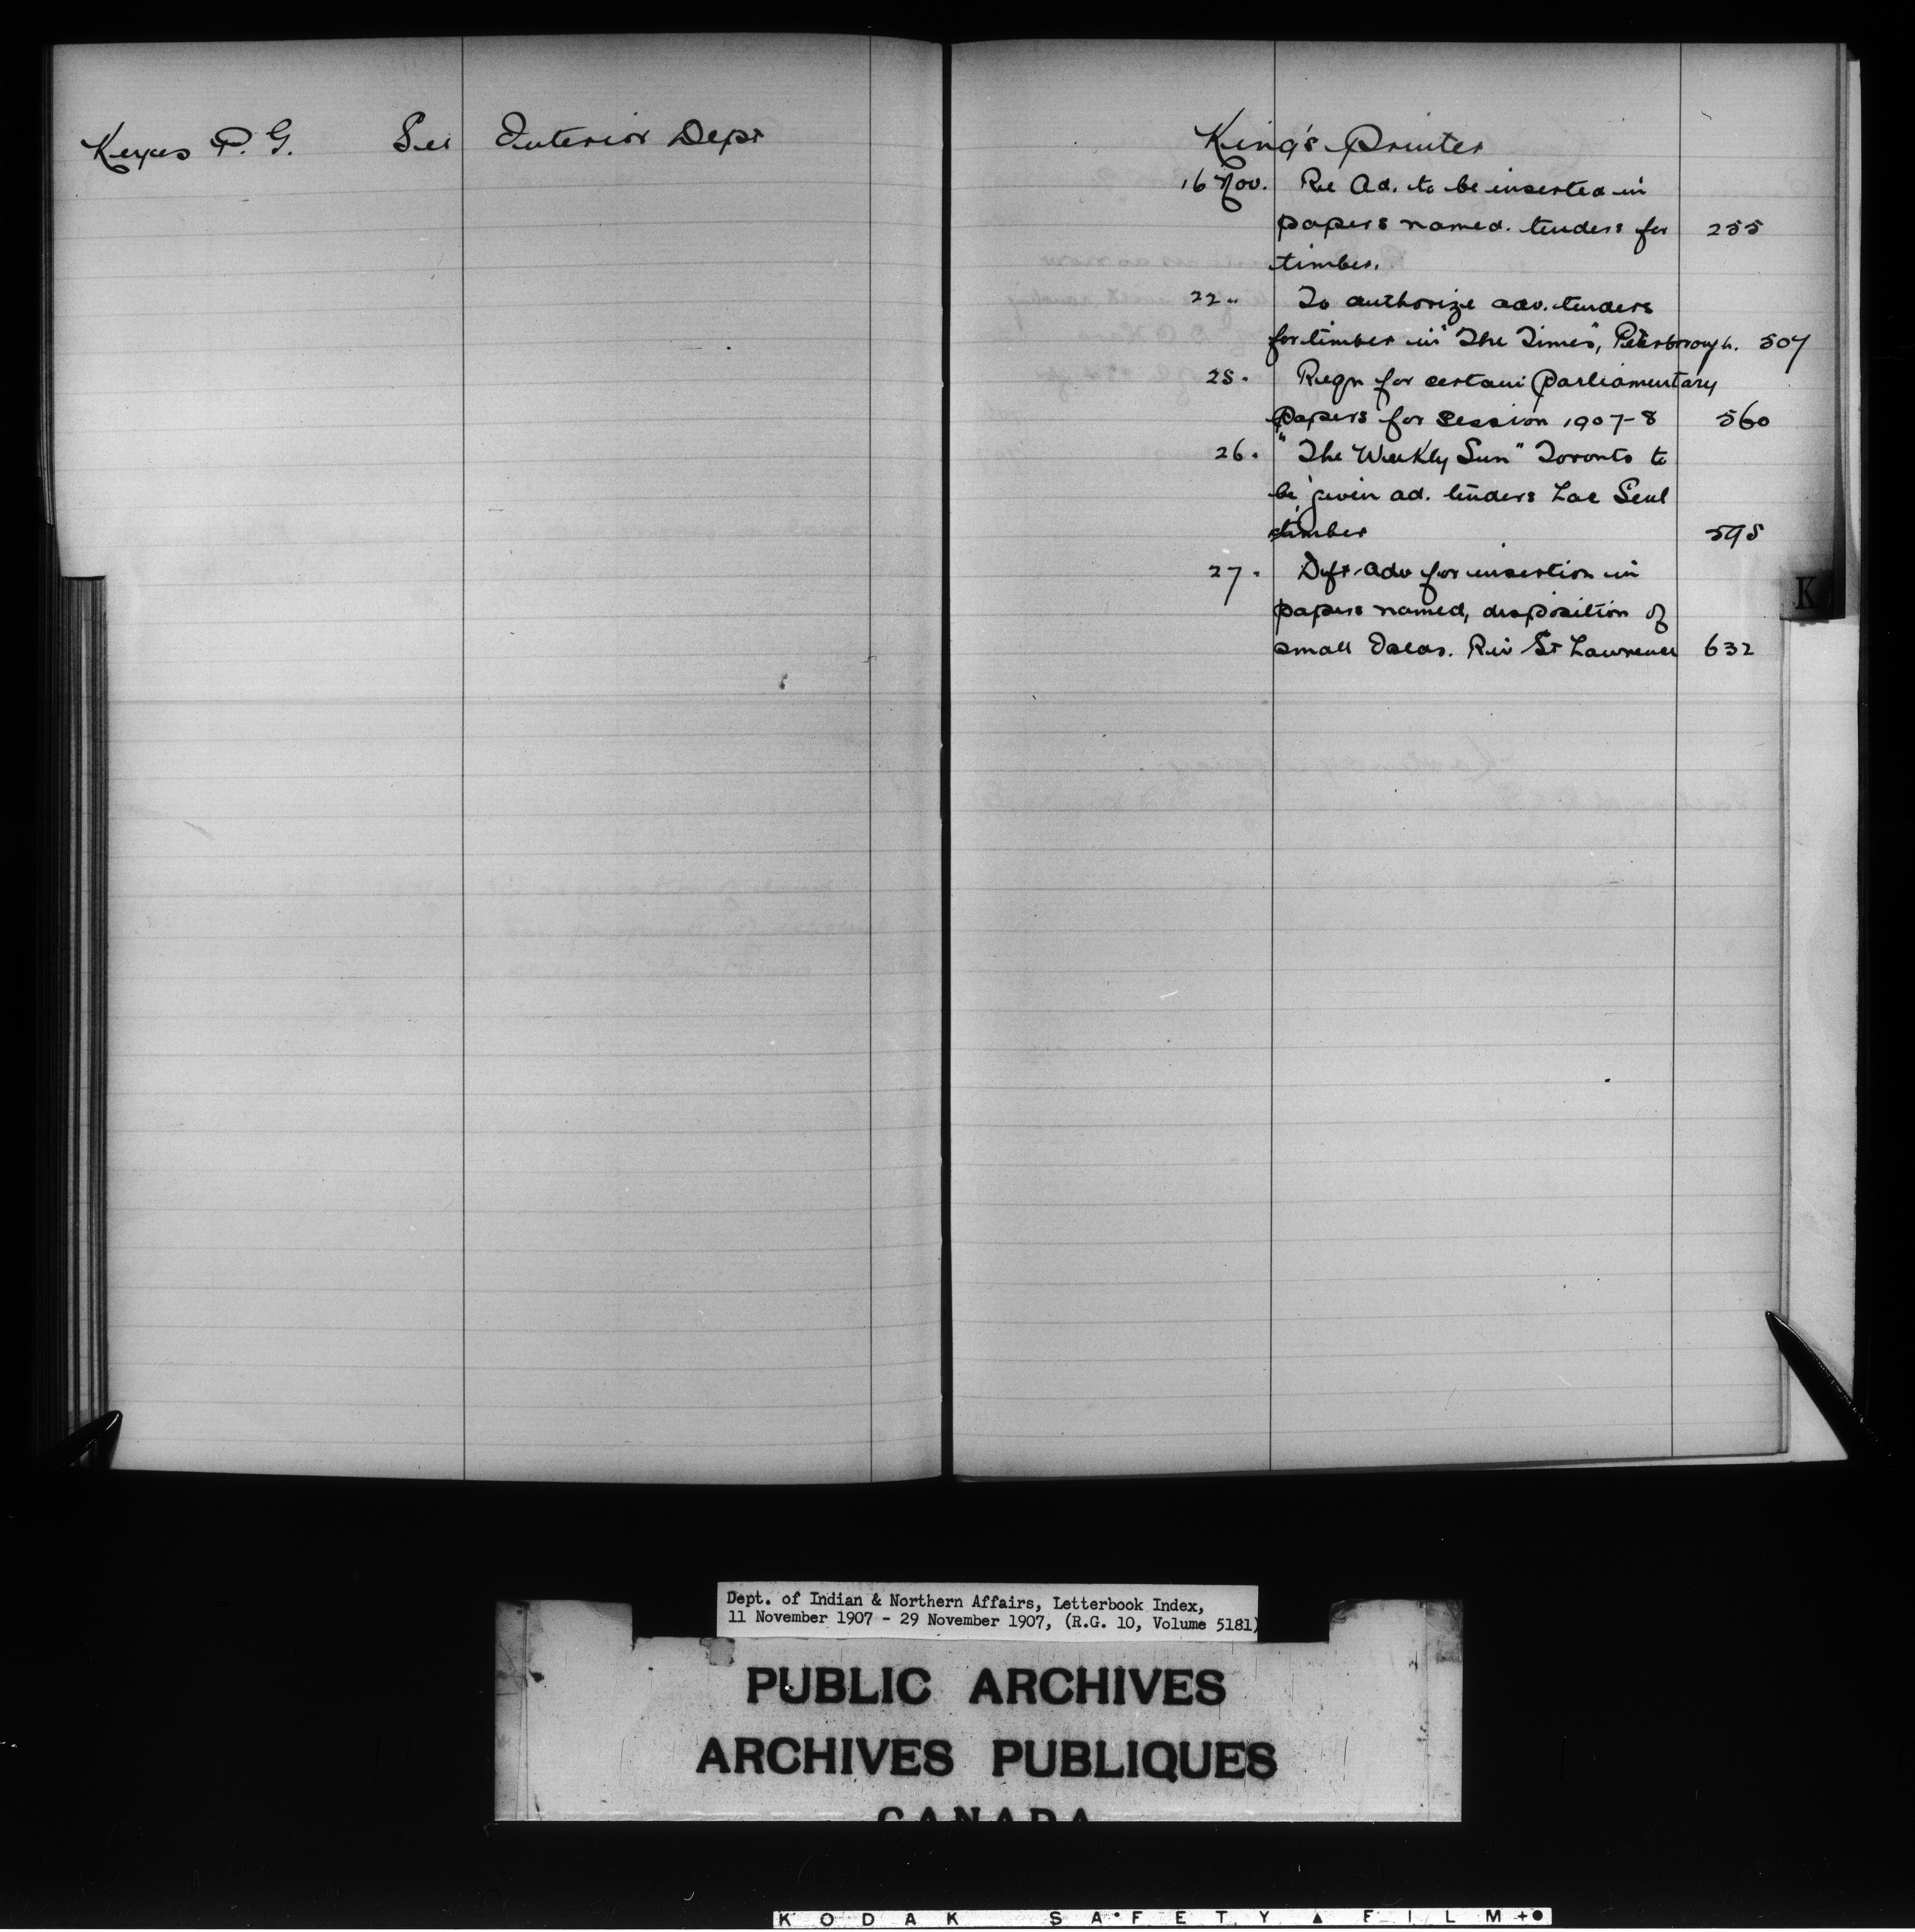 Keyes P. G. See Interior Dept
King's Printer
16 Nov. Re Ad. to be inserted in
papers named. tenders for 255
timber.
22 " To authorize adv. tenders
for timber in "The Times", Peterborough. 507
25. Reqn for certain Parliamentary
papers for session 1907-8 560
26. "The Weekly Sun" Toronto to
be given ad. tenders Lac Seul
timber 595
27. Dft. adv for insertion in
papers named, disposition of
small Islds. Riv St Lawrence 632
K
Dept. of Indian & Northern Affairs, Letterbook Index,
11 November 1907 - 29 November 1907, (R.G. 10, Volume 5181)
PUBLIC ARCHIVES
ARCHIVES PUBLIQUES
CANADA
KODAK SAFETY ▲ FILM +●